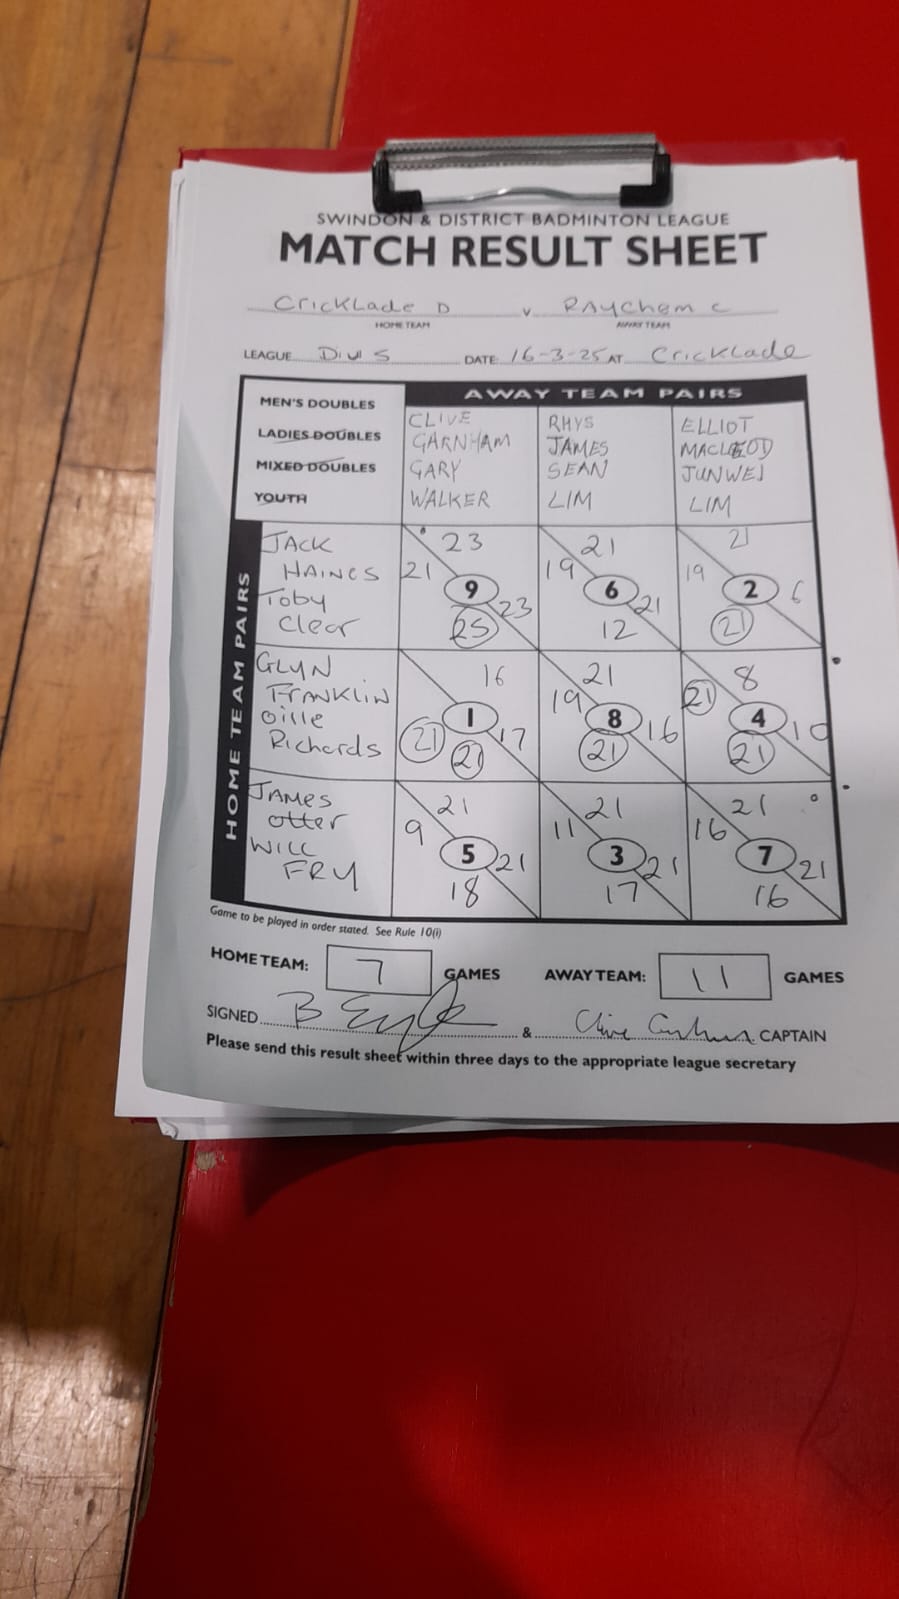 SWINDON & DISTRICT BADMINTON LEAGUE
MATCH RESULT SHEET
Cricklade D v Raychem C
HOME TEAM AWAY TEAM
LEAGUE Div 5 DATE: 16-3-25 AT Cricklade
MEN'S DOUBLES
LADIES DOUBLES
MIXED DOUBLES
YOUTH
AWAY TEAM PAIRS
CLIVE
GARNHAM
GARY
WALKER
RHYS
JAMES
SEAN
LIM
ELLIOT
MACLEOD
JUNWEI
LIM
HOME TEAM PAIRS
JACK
HAINES
Toby
Clear
23
21
9
23
25
21
19
6
21
12
21
19
2
6
21
GLYN
FRANKLIN
Ollie
Richards
16
1
21
17
21
21
19
8
16
21
8
21
4
10
21
JAMES
otter
WILL
FRY
21
9
5
21
18
21
11
3
21
17
21
16
7
21
16
Game to be played in order stated. See Rule 10(i)
HOME TEAM: 7 GAMES AWAY TEAM: 11 GAMES
SIGNED & Clive CAPTAIN
Please send this result sheet within three days to the appropriate league secretary